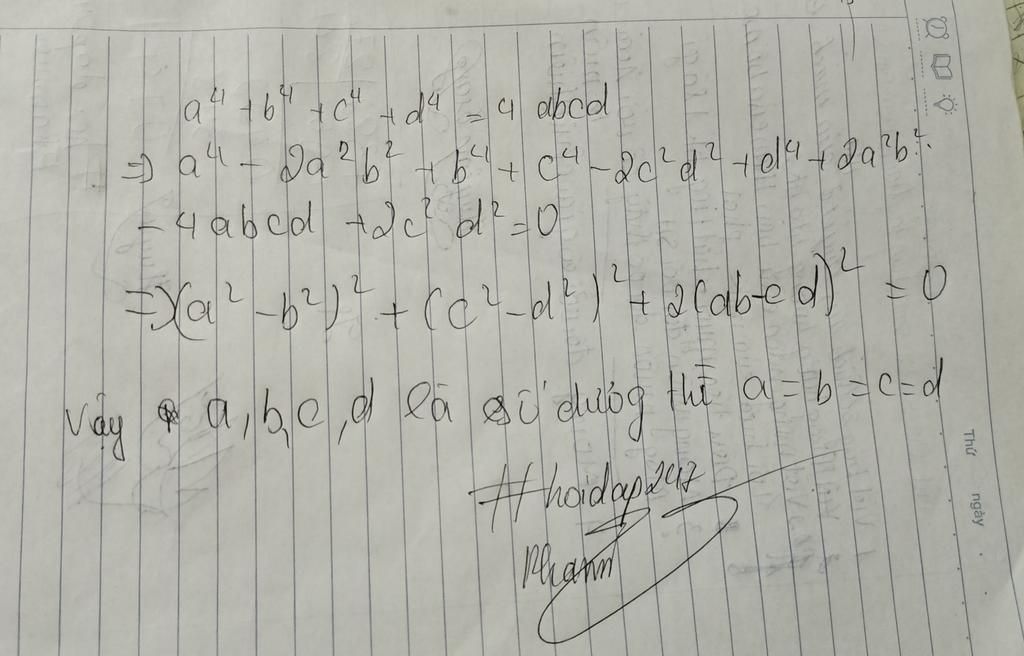 a⁴ + b⁴ + c⁴ + d⁴ = 4 abcd
⇒ a⁴ - 2a²b² + b⁴ + c⁴ - 2c²d² + d⁴ + 2a²b²
- 4abcd + 2c²d² = 0
⇒ (a² - b²)² + (c² - d²)² + 2(ab - cd)² = 0
Vậy a, b, c, d là số dương thì a = b = c = d
#hoidap247
Thứ ngày